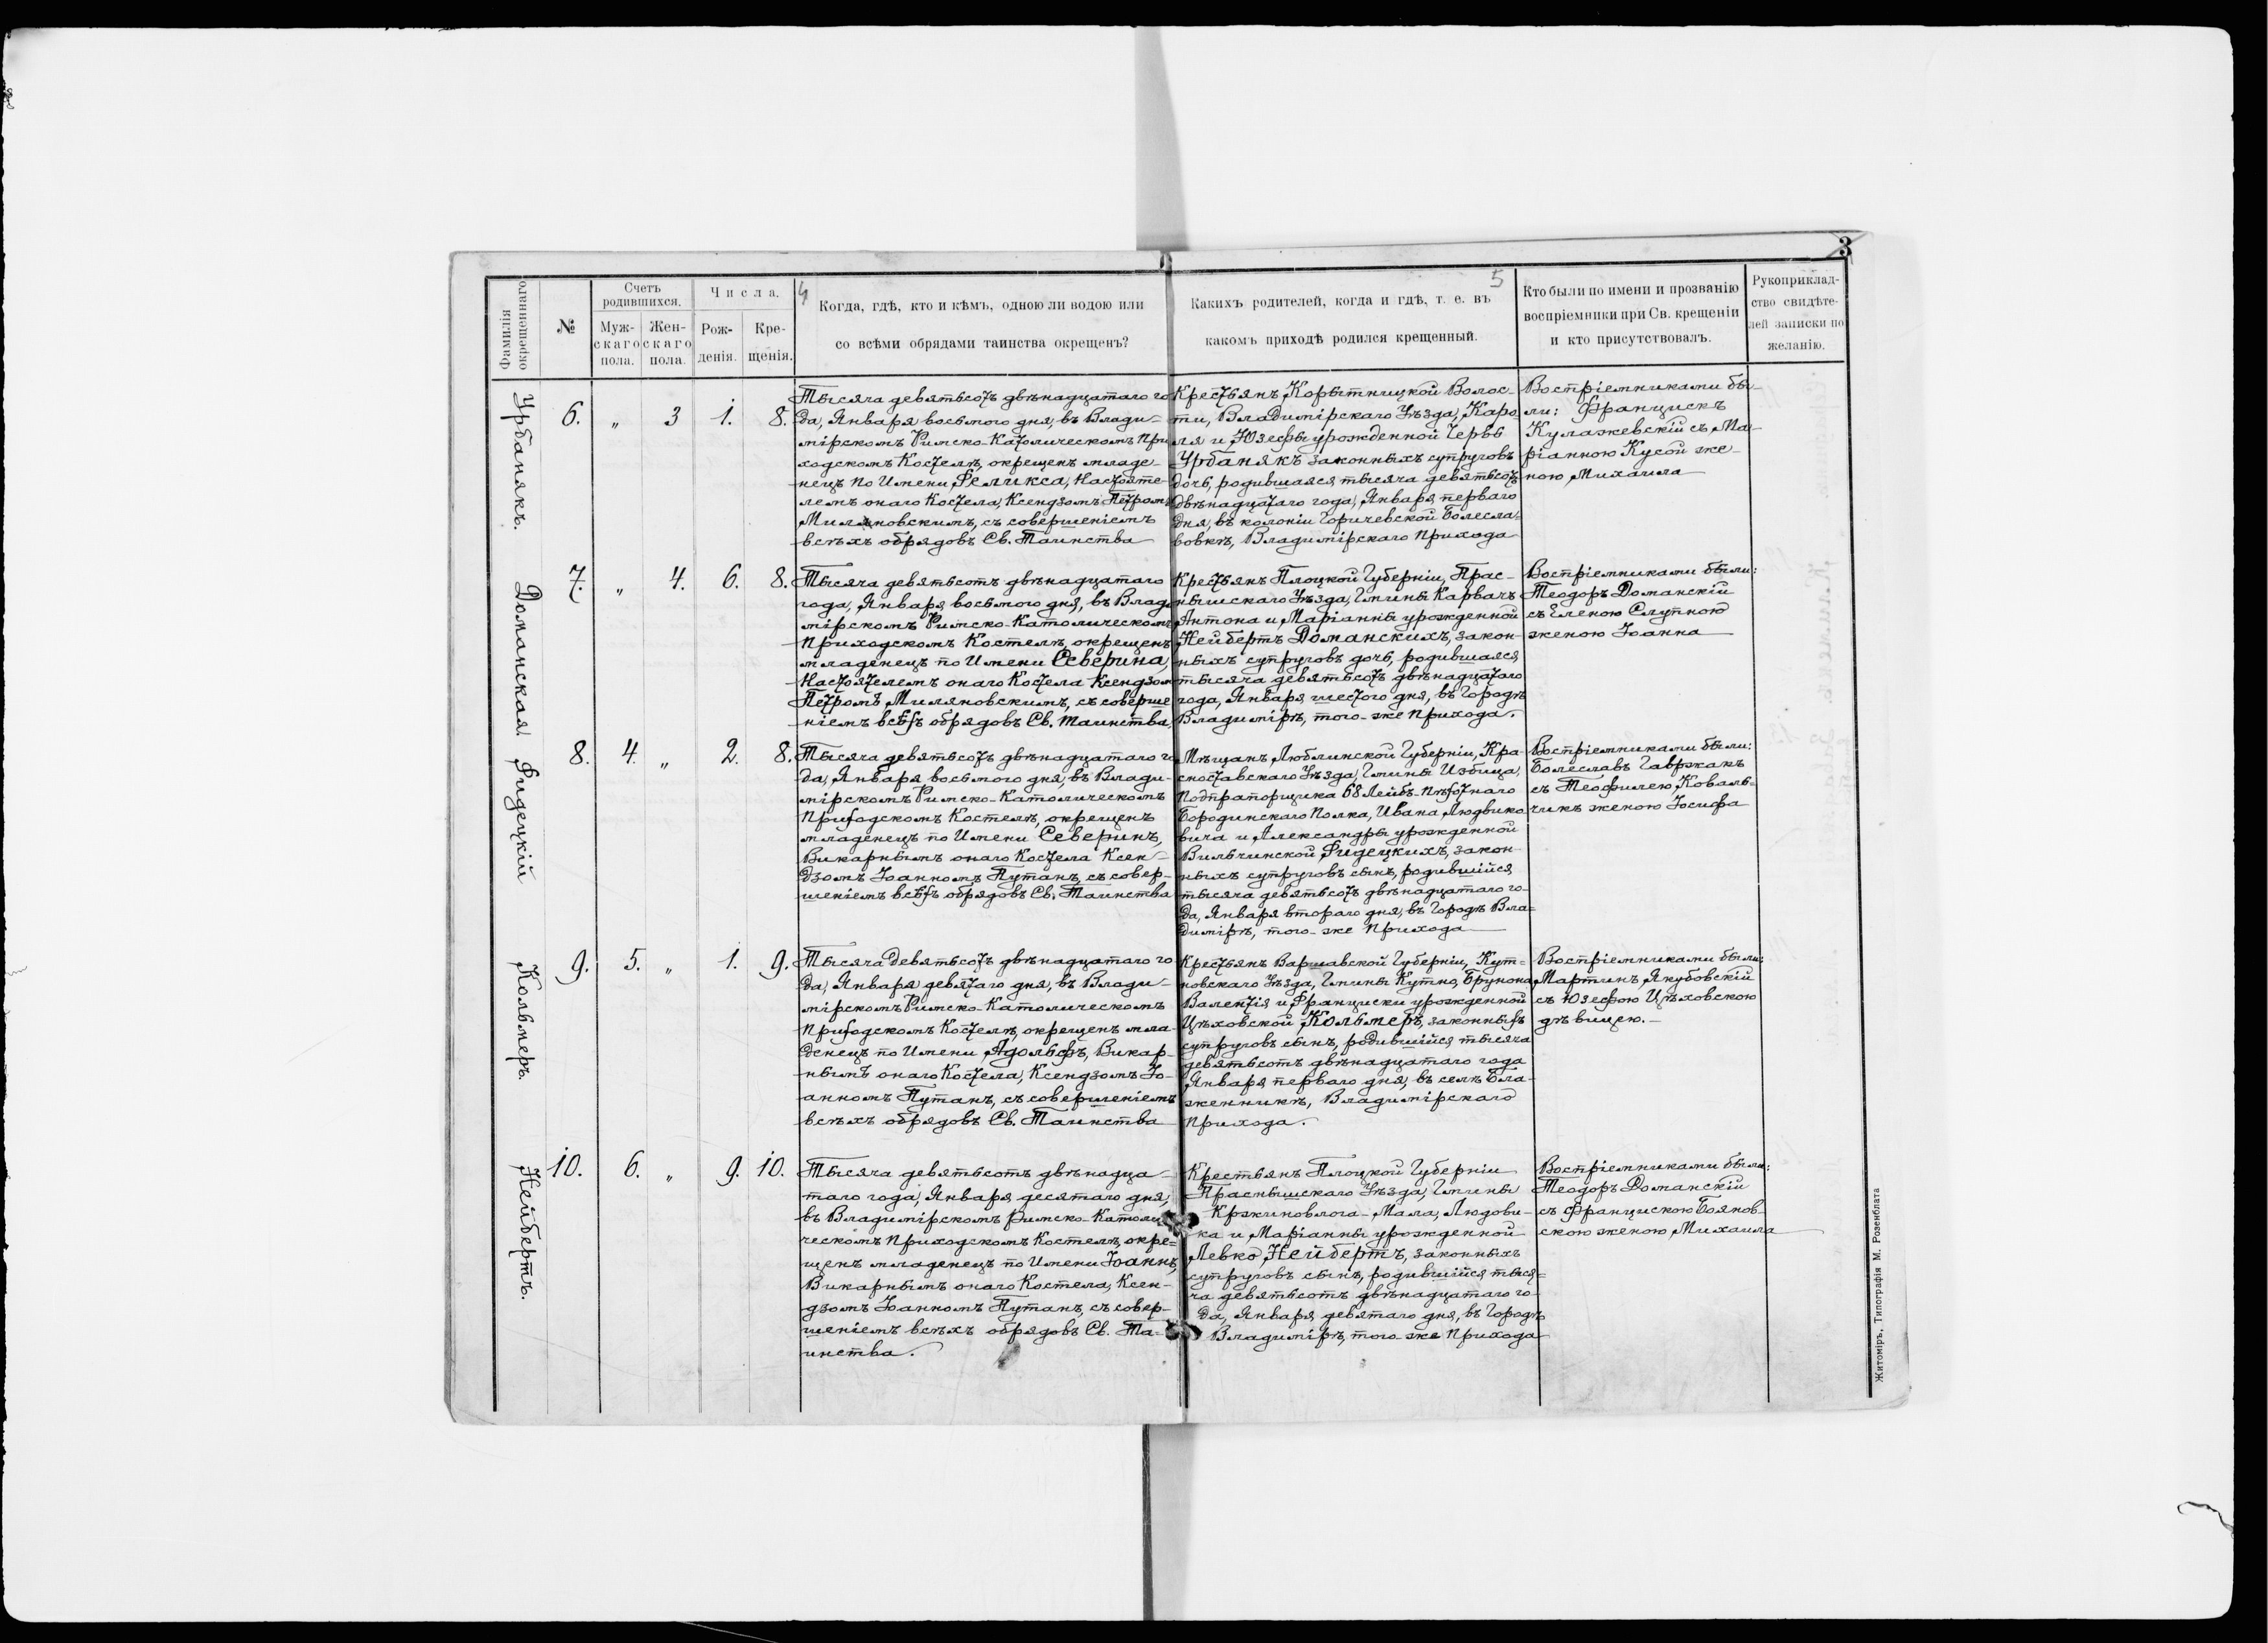 3
4
5
Фамилія окрещеннаго
№
Счетъ родившихся.
Муж-скаго пола.
Жен-скаго пола.
Числа.
Рож-денія.
Кре-щенія.
Когда, гдѣ, кто и кѣмъ, одною ли водою или
со всѣми обрядами таинства окрещенъ?
Какихъ родителей, когда и гдѣ, т. е. въ
какомъ приходѣ родился крещенный.
Кто были по имени и прозванію
воспріемники при Св. крещеніи
и кто присутствовалъ.
Рукоприклад-
ство свидѣте-
лей записки по
желанію.
Урбанякъ.
6. „ 3 1. 8.
Тысяча девятьсотъ двѣнадцатаго го
да, Января восьмого дня, въ Влади-
мірскомъ Римско-Католическомъ При
ходскомъ Костелѣ, окрещенъ младе-
нецъ по Имени Феликса, Настояте-
лемъ онаго Костела, Ксендзомъ Петромъ
Миляновскимъ, съ совершеніемъ
всѣхъ обрядовъ Св. Таинства
Крестьянъ Корытницкой Волос-
ти, Владимірскаго Уѣзда, Каро
ля и Юзефы урожденной Червы
Урбанякъ законныхъ супруговъ
дочь, родившаяся тысяча девятьсотъ
двѣнадцатаго года, Января перваго
дня, въ колоніи Горичевской Болесла-
вовкѣ, Владимірскаго прихода
Востріемниками бы-
ли: Францискъ
Кулажевскій съ Ма-
ріанною Кусой же-
ною Михаила
Доманская
7. „ 4. 6. 8.
Тысяча девятьсотъ двѣнадцатаго
года, Января восьмого дня, въ Влади
мірскомъ Римско-Католическомъ
Приходскомъ Костелѣ, окрещенъ
младенецъ по Имени Северина,
Настоятелемъ онаго Костела Ксендзом
Петромъ Миляновскимъ, съ соверше
ніемъ всѣхъ обрядовъ Св. таинства,
Крестьянъ Плоцкой Губерніи, Прас-
нышскаго Уѣзда, Гмины Карвачъ
Антона и Маріанны урожденной
Нейбертъ Доманскихъ, закон-
ныхъ супруговъ дочь, родившаяся
тысяча девятьсотъ двѣнадцатаго
года, Января шестого дня, въ Городѣ
Владимірѣ, того-же прихода.
Востріемниками были:
Теодоръ Доманскій
съ Еленою Слупною
женою Іоанна
Фидецкій
8. 4. „ 2. 8.
Тысяча девятьсотъ двѣнадцатаго го
да, Января восьмого дня, въ Влади-
мірскомъ Римско-Католическомъ
Приходскомъ Костелѣ, окрещенъ
младенецъ по Имени Северинъ,
Викарнымъ онаго Костела Ксен-
дзомъ Іоанномъ Путанъ, съ совер-
шеніемъ всѣхъ обрядовъ Св. Таинства
Мѣщанъ Люблинской Губерніи, Кра-
ноставскаго Уѣзда, Гмины Избица,
Подпрапорщика 68 Лейбъ-пѣхотнаго
Бородинскаго Полка, Ивана Людвико
вича и Александры урожденной
Вильчинской Фидецкихъ, закон-
ныхъ супруговъ сынъ, родившійся
тысяча девятьсотъ двѣнадцатаго го-
да, Января втораго дня, въ Городѣ Вла=
димірѣ, того-же прихода
Востріемниками были:
Болеславъ Гавржакъ
съ Теофилею Коваль-
чикъ женою Іосифа
Кольмеръ.
9. 5. „ 1. 9.
Тысяча девятьсотъ двѣнадцатаго го
да, Января девятаго дня, въ Влади-
мірскомъ Римско-Католическомъ
Приходскомъ Костелѣ, окрещенъ мла-
денецъ по Имени Адольфъ, Викар-
нымъ онаго Костела, Ксендзомъ Іо-
анномъ Путанъ, съ совершеніемъ
всѣхъ обрядовъ Св. Таинства
Крестьянъ Варшавской Губерніи, Кут=
новскаго Уѣзда, Гмины Кутно, Брунона
Валентія и Франциски урожденной
Цѣховской Кольмеръ, законныхъ
супруговъ сынъ, родившійся тысяча
девятьсотъ двѣнадцатаго года
Января перваго дня, въ селѣ Бла-
женникѣ, Владимірскаго
прихода.
Востріемниками были:
Мартинъ Якубовскій
съ Юзефою Цѣховскою
дѣвицею.-
Нейбертъ.
10. 6. „ 9. 10.
Тысяча девятьсотъ двѣнадца-
таго года, Января десятаго дня,
въ Владимірскомъ Римско-Католи
ческомъ Приходскомъ Костелѣ, окре=
щенъ младенецъ по Имени Іоаннъ,
Викарнымъ онаго Костела, Ксен-
дзомъ Іоанномъ Путанъ, съ совер-
шеніемъ всѣхъ обрядовъ Св. Та-
инства.
Крестьянъ Плоцкой Губерніи
Праснышскаго Уѣзда, Гмины
Кржиновлога-Мала, Людови-
ка и Маріанны урожденной
Левко Нейбертъ, законныхъ
супруговъ сынъ, родившійся тыся=
ча девятьсотъ двѣнадцатаго го-
да, Января девятаго дня, въ Городѣ
Владимірѣ, того-же прихода
Востріемниками были:
Теодоръ Доманскій
съ Францискою Боянов-
скою женою Михаила
Житоміръ, Типографія М. Розенблата